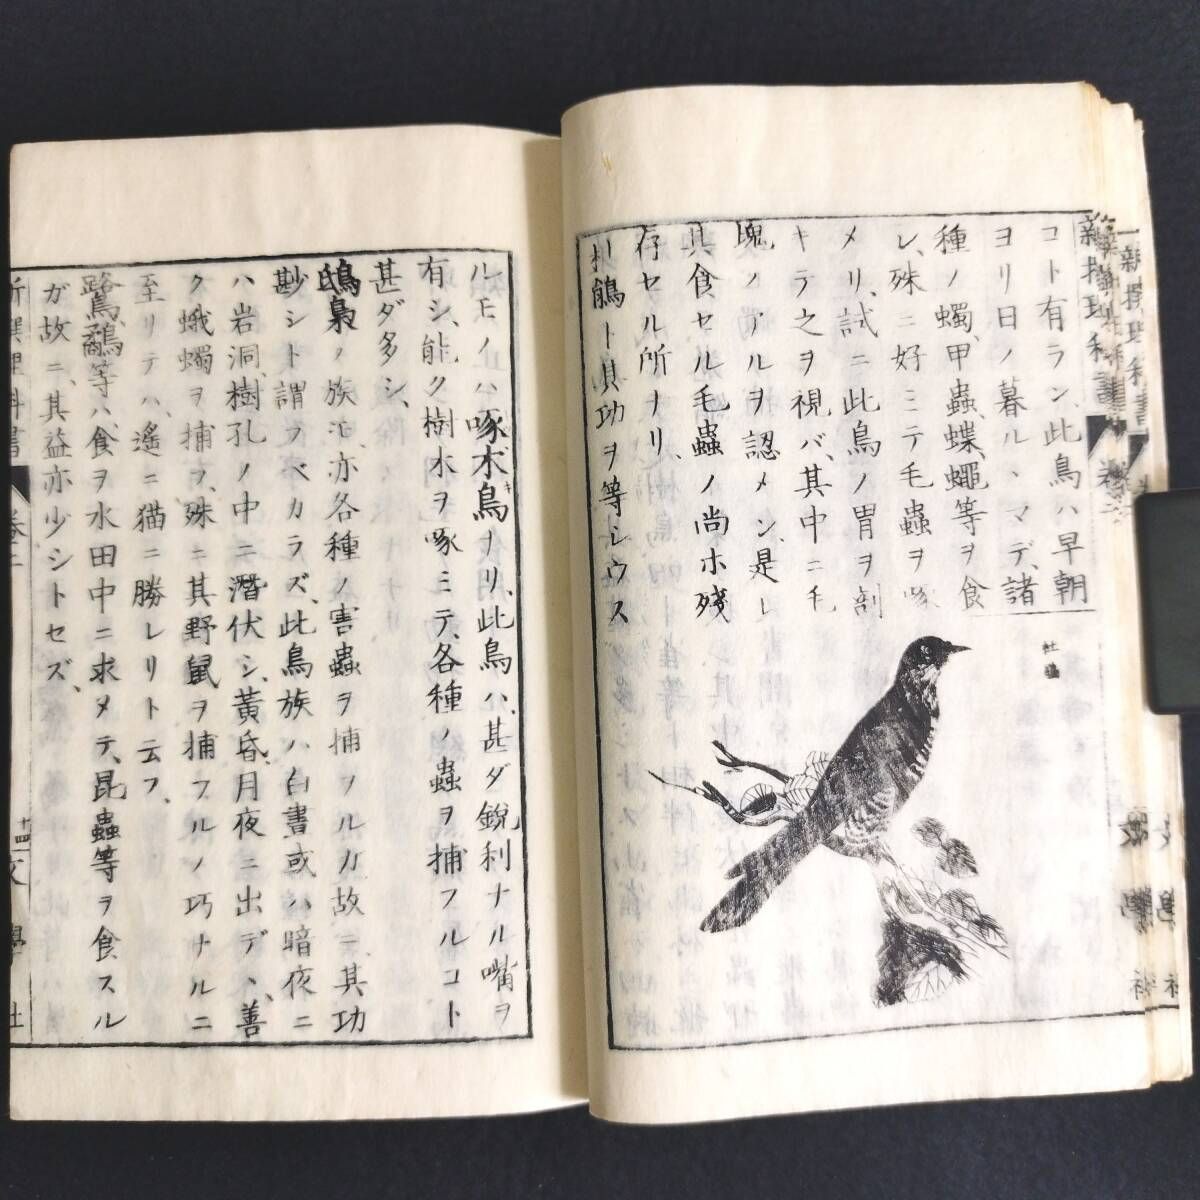 新撰理科書
コト有ラン、此鳥ハ早朝
ヨリ日ノ暮ルヽマデ、諸
種ノ蠋、甲蟲、蝶、蠅等ヲ食
レ、殊ニ好ミテ毛蟲ヲ啄
メリ、試ニ此鳥ノ胃ヲ剖
キテ之ヲ視バ、其中ニ毛
塊ノアルヲ認メン、是レ
其食セル毛蟲ノ尚ホ殘
存セル所ナリ、
鶺ト其功ヲ等シウス
杜鵑
ルモノハ啄木鳥ナリ、此鳥ハ、甚ダ銳利ナル嘴ヲ
有シ、能ク樹木ヲ啄ミテ、各種ノ蟲ヲ捕フルコト
甚ダ多シ、
鴟梟ノ族モ、亦各種ノ害蟲ヲ捕ヲルガ故ニ、其功
尠シト謂フベカラズ、此鳥族ハ白晝或ハ暗夜ニ
ハ岩洞、樹孔ノ中ニ潛伏シ、黃昏月夜ニ出デヽ、善
ク蛾蠋ヲ捕ヲ、殊ニ其野鼠ヲ捕フルノ巧ナルニ
至リテハ、遙ニ猫ニ勝レリト云フ、
鷺、鷸等ハ、食ヲ水田中ニ求メテ、昆蟲等ヲ食スル
ガ故ニ、其益亦少シトセズ、
新撰理科書 卷二 十四 文學社